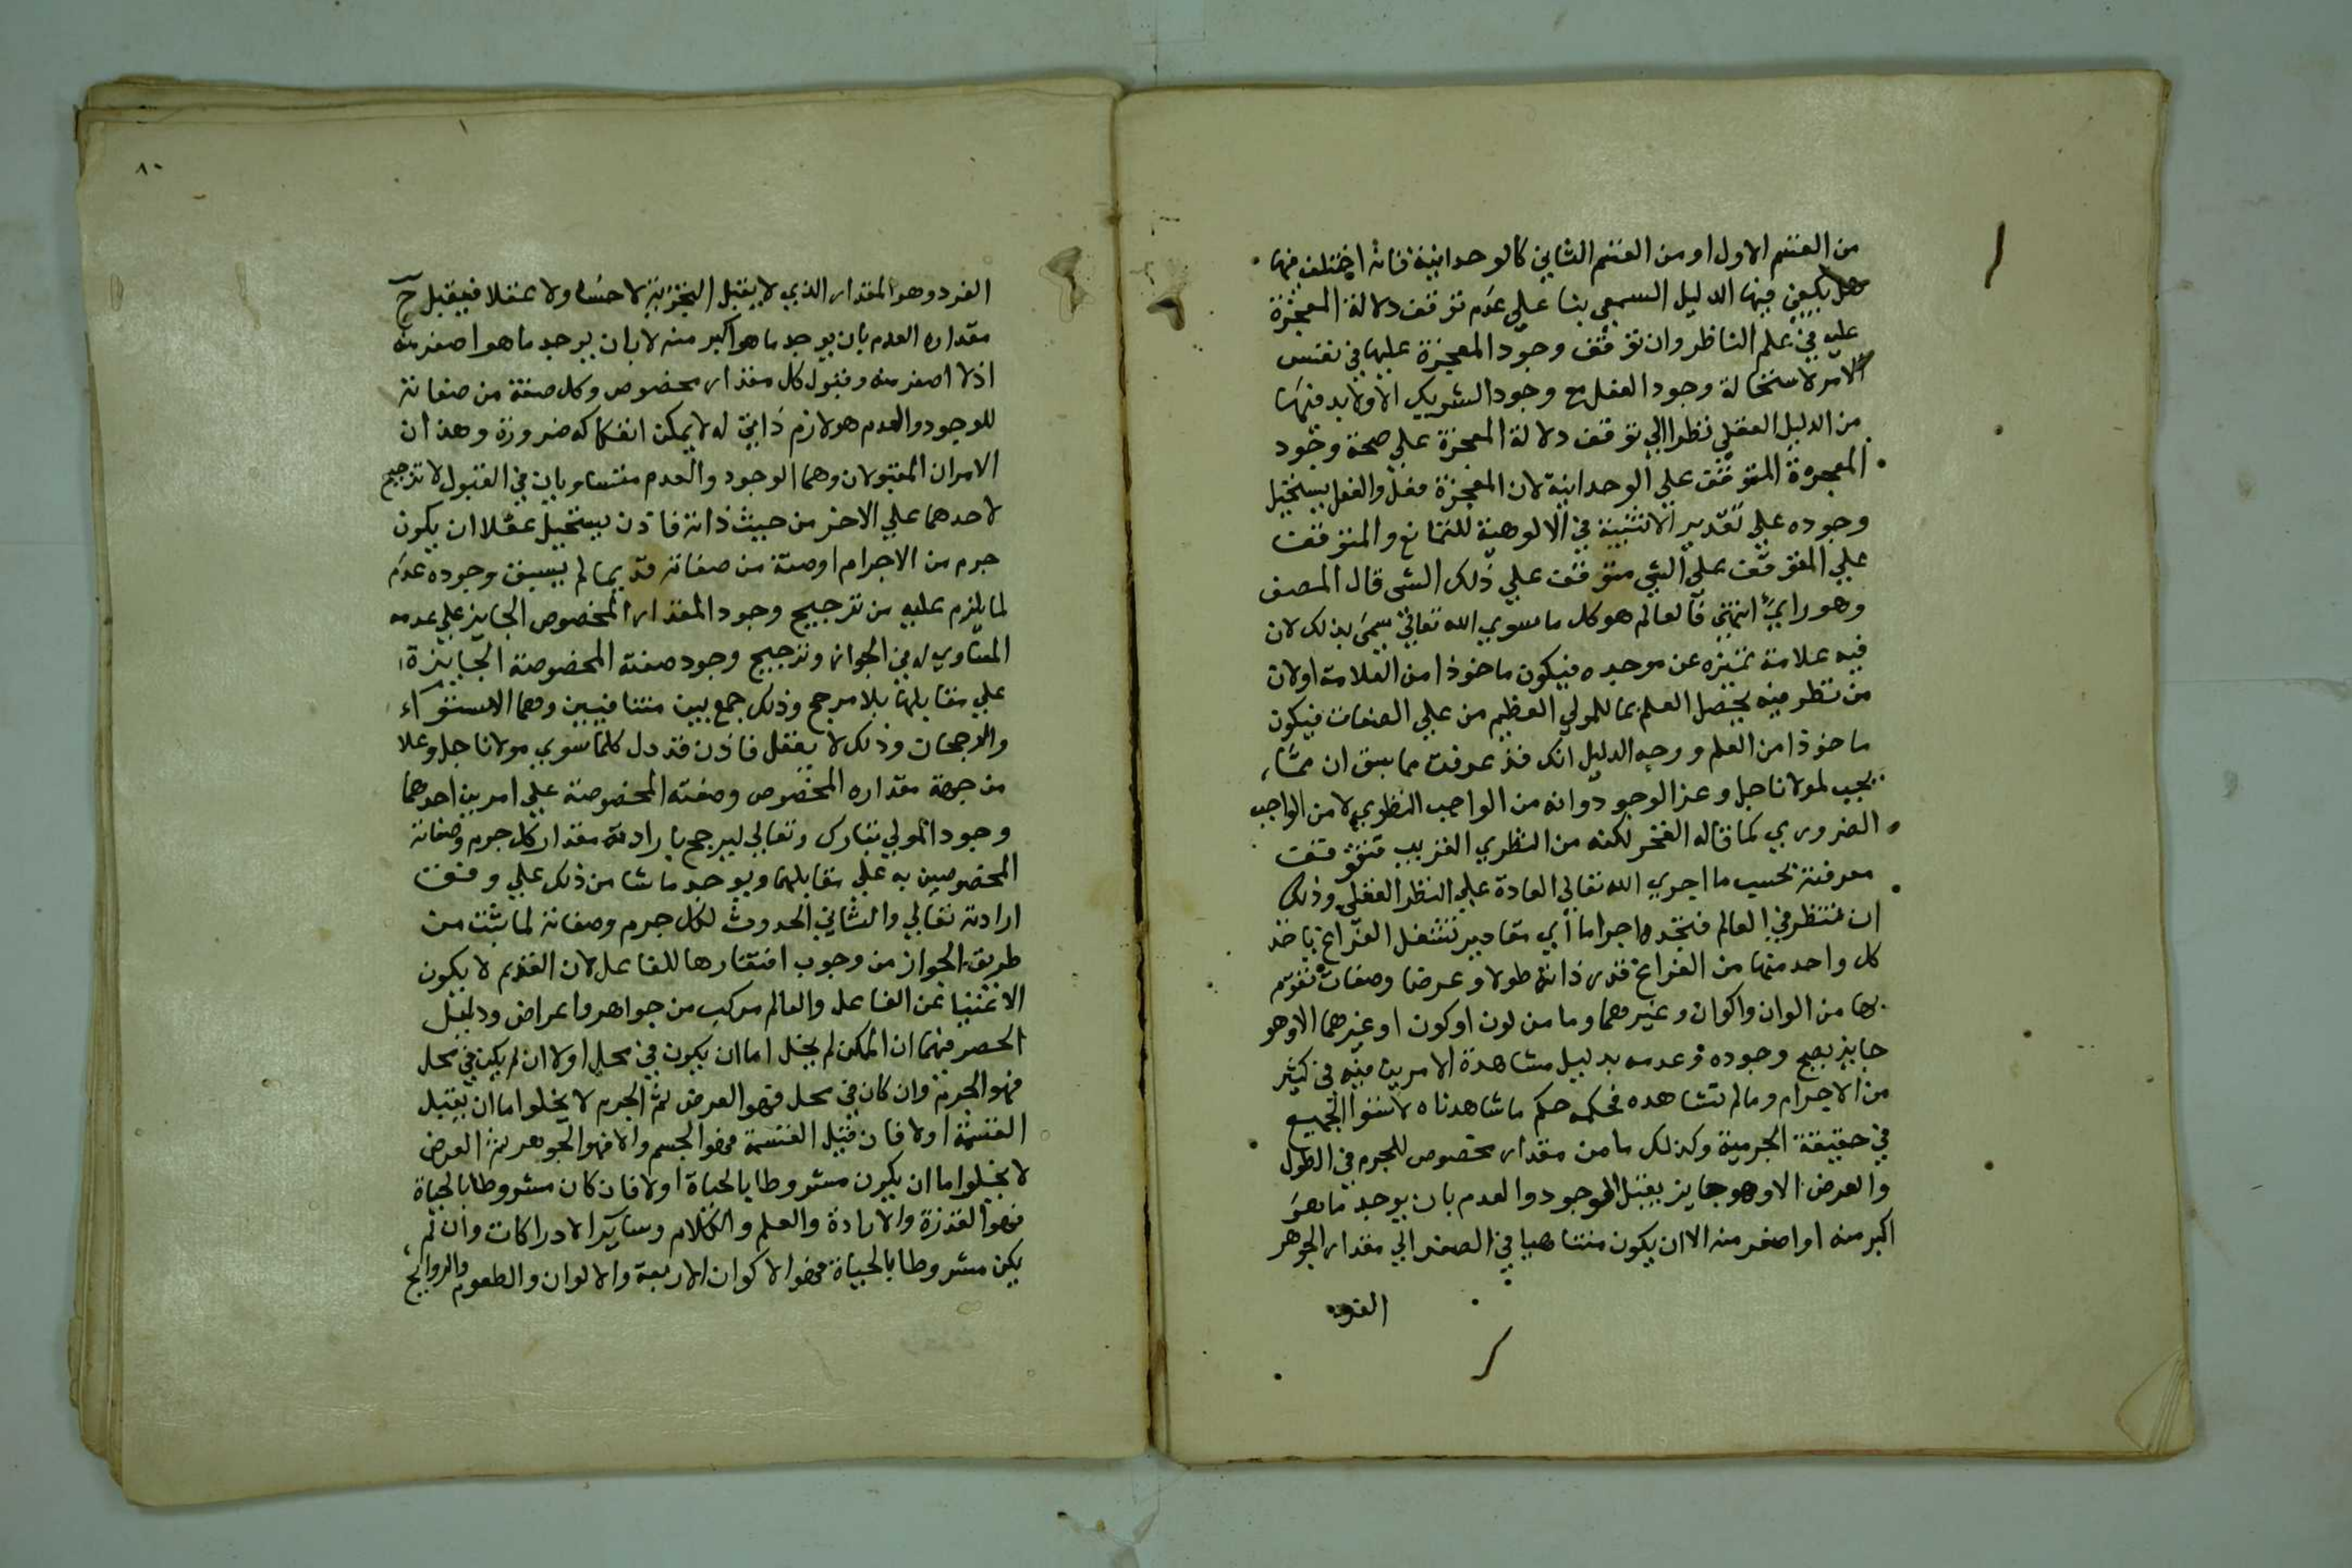 من القسم الاول او من القسم الثاني كالوحدانية فانه اختلف فيها
هل يكفي فيها الدليل السمعي بنا علي عدم توقف دلالة المعجزة
عليه في علم الناظر وان توقف وجود المعجزة عليها في نفس
الامر لاستحالة وجود الفعل مع وجود الشريك الا ولابد فيها
من الدليل العقلي نظرا الي توقف دلالة المعجزة علي صحة وجود
المعجزة المتوقف علي الوحدانية لان المعجزة فعل والفعل يستحيل
وجوده علي تقدير الاثنينية في الالوهية للتمانع والمتوقف
علي المتوقف علي الشي متوقف علي ذلك الشي قال المصنف
وهو رايي انتهي فالعالم هو كل ما سوي الله تعالي سمي بذلك لان
فيه علامة تميزه عن موجده فيكون ماخوذا من العلامة اولان
من نظر فيه يحصل العلم بما للمولي العظيم من علي الصفات فيكون
ماخوذا من العلم ووجه الدليل انك قد عرفت مما سبق ان مما
يجب لمولانا جل وعز الوجود وانه من الواجب النظري لا من الواجب
الضروري كما قاله الفخر لكنه من النظري القريب فتتوقف
معرفته بحسب ما اجري الله تعالي العادة علي النظر العقلي وذلك
ان تنتظر في العالم فتجده اجراما أي مقادير تشغل الفراغ ياخذ
كل واحد منها من الفراغ قدر ذاته طولا وعرضا وصفات تقوم
بها من الوان واكوان وغيرهما وما من لون او كون او غيرهما الا وهو
جايز يصح وجوده وعدمه بدليل مشاهدة الامرين فيه في كثير
من الاجرام وما لم تشاهده فحكمه حكم ما شاهدناه لاستوا الجميع
في حقيقة الجرمية وكذلك ما من مقدار مخصوص للجرم في الطول
والعرض الا وهو جايز يقبل الوجود والعدم بان يوجد ما هو
اكبر منه او اصغر منه الا ان يكون متناهيا في الصغر الي مقدار الجوهر
الفرد
٨٠
الفرد وهو المقدار الذي لا يقبل التجزية لا حسا ولا عقلا فيقبل ح
مقداره العدم بان يوجد ما هو اكبر منه لا بان يوجد ما هو اصغر منه
اذ لا اصغر منه وقبول كل مقدار مخصوص وكل صفة من صفاته
للوجود والعدم هو لازم ذاتي له لا يمكن انفكاكه ضرورة وهذان
الامران المقبولان وهما الوجود والعدم متساويان في القبول لا ترجيح
لاحدهما علي الاخر من حيث ذاته فاذن يستحيل عقلا ان يكون
جرم من الاجرام او صفة من صفاته قديما لم يسبق وجوده عدم
لما يلزم عليه من ترجيح وجود المقدار المخصوص الجايز علي عدمه
المساوي له في الجواز وترجيح وجود صفته المخصوصة الجايزة
علي مقابلها بلا مرجح وذلك جمع بين متنافيين وهما الاستواء
والرجحان وذلك لا يعقل فاذن قد دل كلما سوي مولانا جل وعلا
من جهة مقداره المخصوص وصفته المخصوصة علي امرين احدهما
وجود المولي تبارك وتعالي ليرجح بارادته مقدار كل جرم وصفاته
المخصوصين به علي مقابلهما ويوجد ما شا من ذلك علي وفق
ارادته تعالي والثاني الحدوث لكل جرم وصفاته لما يثبت من
طريق الجواز من وجوب افتقارها للفاعل لان القديم لا يكون
الا غنيا عن الفاعل والعالم مركب من جواهر واعراض ودليل
الحصر فيهما ان الممكن لم يخل اما ان يكون في محل اولا ان لم يكن في محل
فهو الجرم وان كان في محل فهو العرض ثم الجرم لا يخلو اما ان يقبل
القسمة اولا فان قبل القسمة فهو الجسم والا فهو الجوهر ثم العرض
لا يخلو اما ان يكون مشروطا بالحياة اولا فان كان مشروطا بالحياة
فهو القدرة والارادة والعلم والكلام وساير الادراكات وان لم
يكن مشروطا بالحياة فهو الاكوان الاربعة والالوان والطعوم والروايح